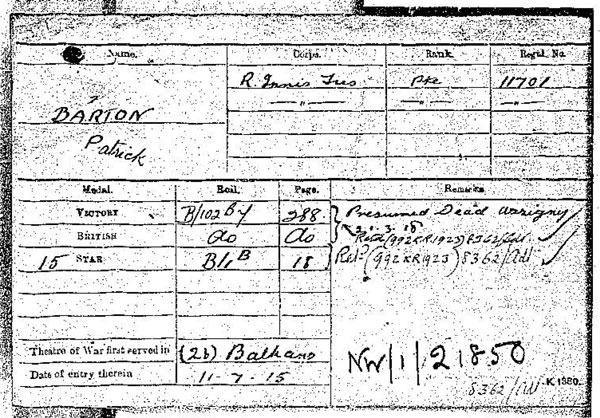 Name. Corps. Rank. Regtl. No.
BARTON R. Innis Fus Pte 11701
Patrick — " — — " — — " —
Medal. Roll. Page. Remarks
VICTORY B/102 B 288 Presumed Dead
BRITISH do do 21.3.18
(992KR1923) 8362/Adl
15 STAR B/1B 18 Ret: (992KR1923) 8362/Adl
Theatre of War first served in (2b) Balkans
Date of entry therein 11-7-15
NW/1/21850
8362/Adl K 1380.